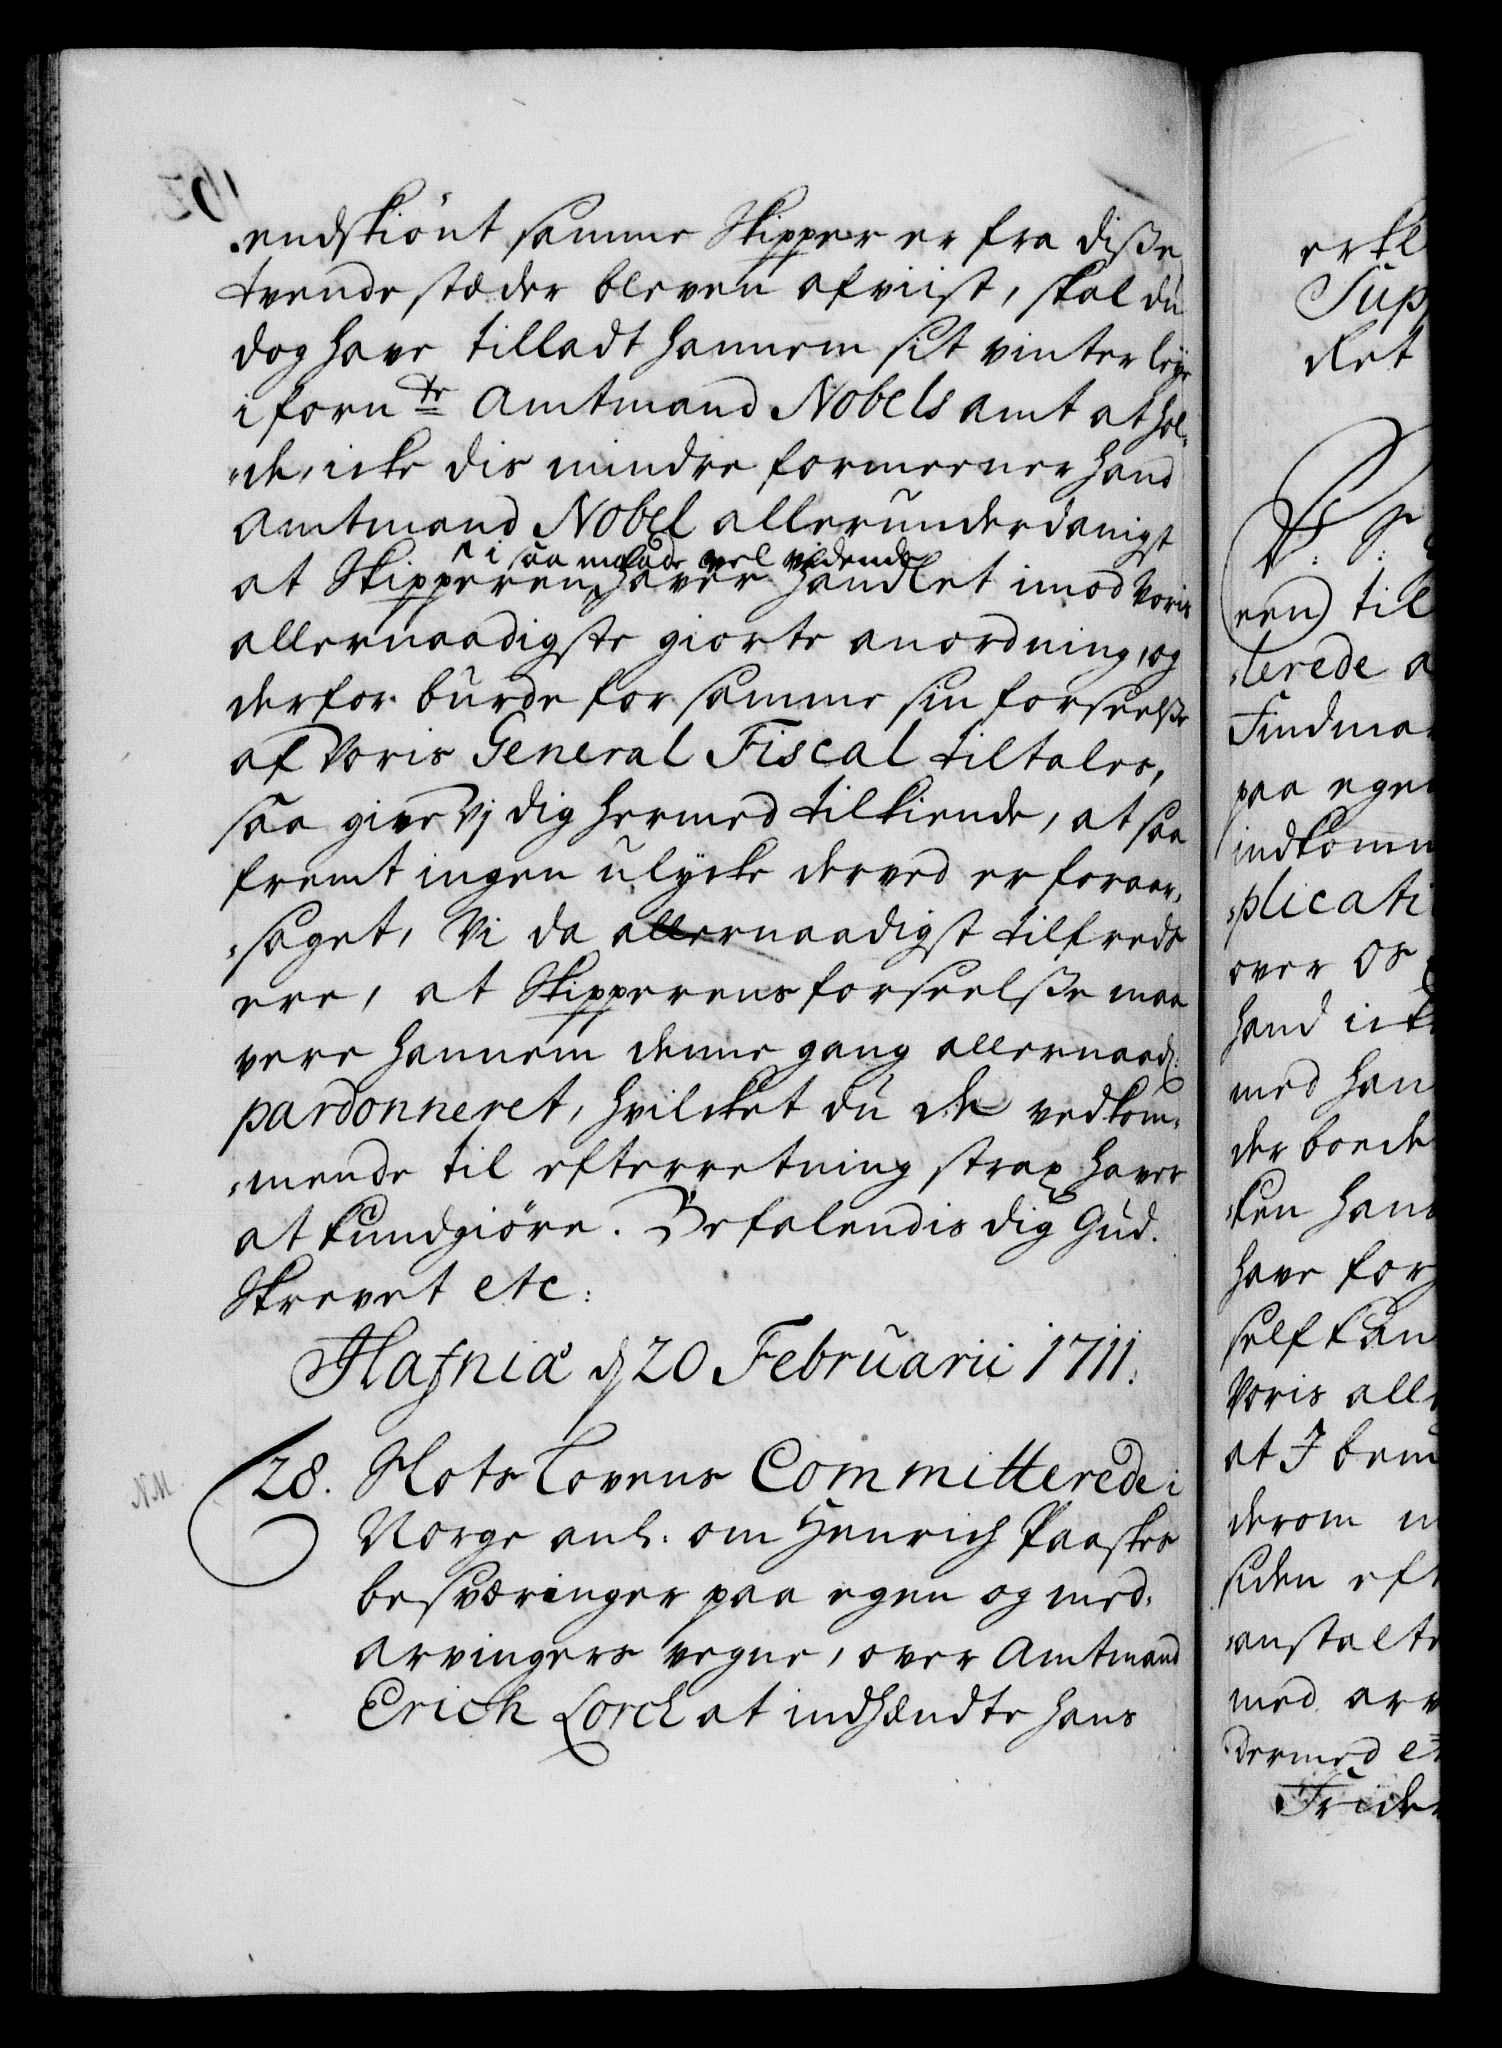 endskiönt samme Skipper er fra diße
tvende stæder bleven afviist, skal du
dog have tilladt hannem sit vinter leye
i forn:te Amtmand Nobels amt at hol-
-de, icke dis mindre formeener hand
Amtmand Nobel allerunderdanigst
i saa maade vel vidende
at Skipperen haver handlet imod Voris
allernaadigste giorte anordning, og
derfor burde for samme sin forseelße
af Voris General Fiscal tiltales,
saa give Vj dig hermed tilkiende, at saa
fremt ingen ulycke derved er foraar-
-saget, Vi da allernaadigst tilfreds
ere, at Skipperens forseelße maa
vere hannem denne gang allernaad:
pardonneret, hvilcket du de vedkom-
-mende til efterretning strax haver
at kundgiöre. Befalendis dig Gud.
Skrevet etc:
Hafniæ d 20 Februarii 1711.
28. Slots Lovens Committerede i
Norge anl: om Henrich Paaskes
besværinger paa egen og med-
arvingers vegne, over Amtmand
Erich Lorch at indhændte hans
erkl
Sup
Ret
een) til
-terede a
Findmar
paa egen
indkomm
-plicati
over os
hand ick
med han
der boede
-ken hans
have for
self kun
Voris all
at I
derom
siden eft
anstalte
med arv
dermed
Frider